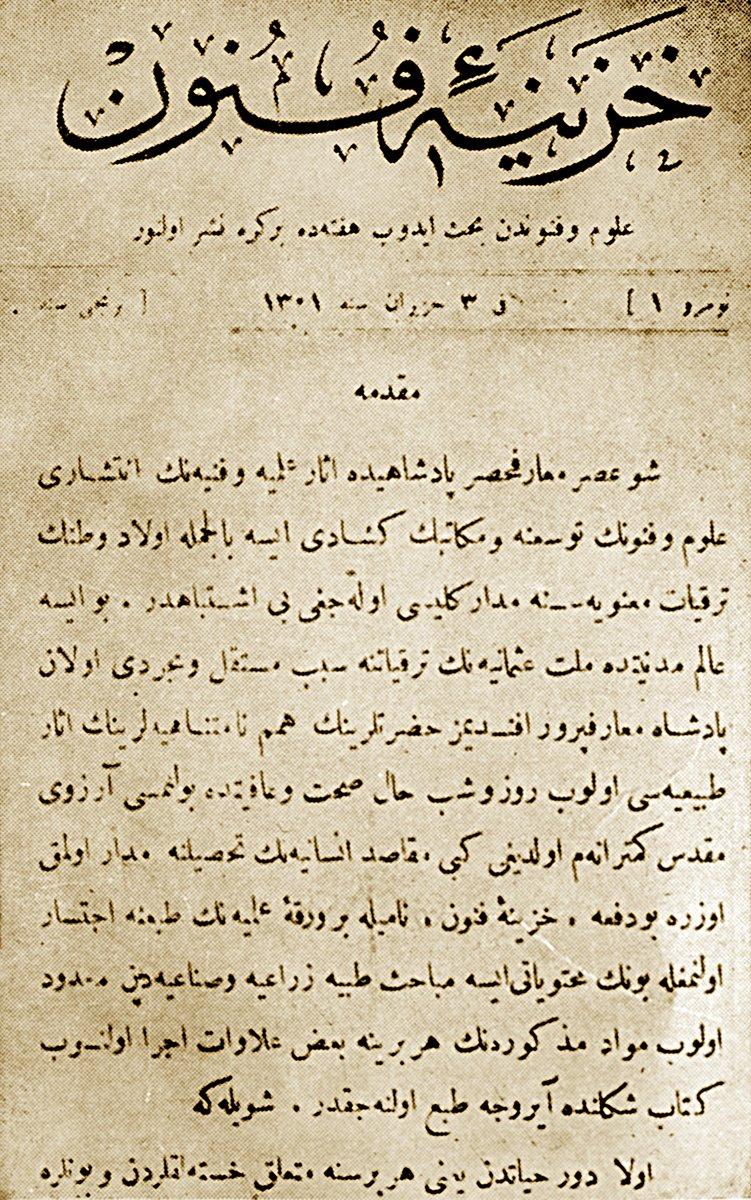 خزینهٔ فنون
علوم و فنوندن بحث ایدوب هفته‌ده برکره نشر اولنور
نومرو ١ ] فی ٣ حزیران سنه ١٣٠١ [ برنجی سنه
مقدمه
شو عصر معارفحصر پادشاهیده اثار علمیه و فنیه‌نك انتشاری
علوم و فنونك توسعنه و مكاتبك كشادی ایسه بالجمله اولاد وطنك
ترقیات معنویه‌سنه مدار كلیسی اوله‌جغی بی اشتباهدر . بو ایسه
عالم مدنیتده ملت عثمانیه‌نك ترقیاتنه سبب مستقل و مجردی اولان
پادشاه معارفپرور افندیمز حضرتلرینك همم نامتناهیه‌لرینك اثار
طبیعیه‌سی اولوب روز و شب حال صحت و عافیتده بولنمسی آرزوی
مقدس كمترانه‌م اولدیغی كبی مقاصد انسانیه‌نك تحصیلنه مدار اولمق
اوزره بودفعه « خزینهٔ فنون » نامیله بر ورقهٔ علمیه‌نك طبعنه اجتسار
اولنمغله بونك محتویاتی ایسه مباحث طبیه زراعیه وصناعیه‌دن معدود
اولوب مواد مذكوردنك هر برینه بعض علاوات اجرا اولنوب
كتاب شكلنده آیروجه طبع اولنه‌جقدر . شویله‌كه
اولا دور حیاتدن یعنی هر برسنه متعلق خسته‌لقلردن و بونلره